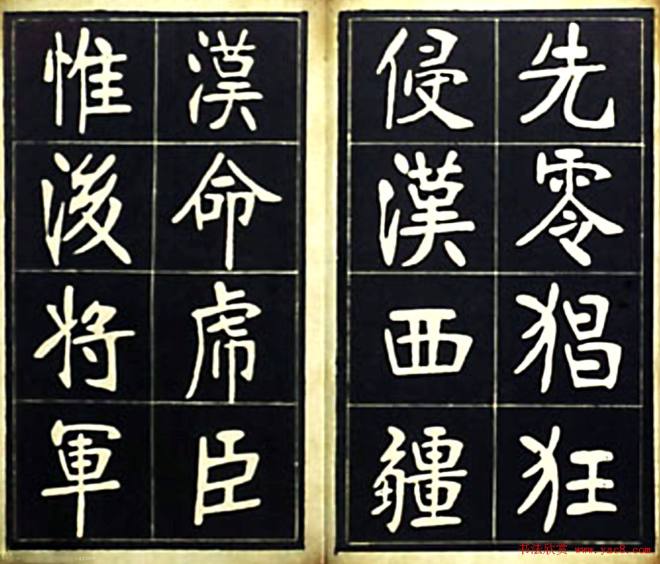 先零猖狂
侵漢西疆
漢命虎臣
惟後将軍
书法欣赏 www.yac8.com